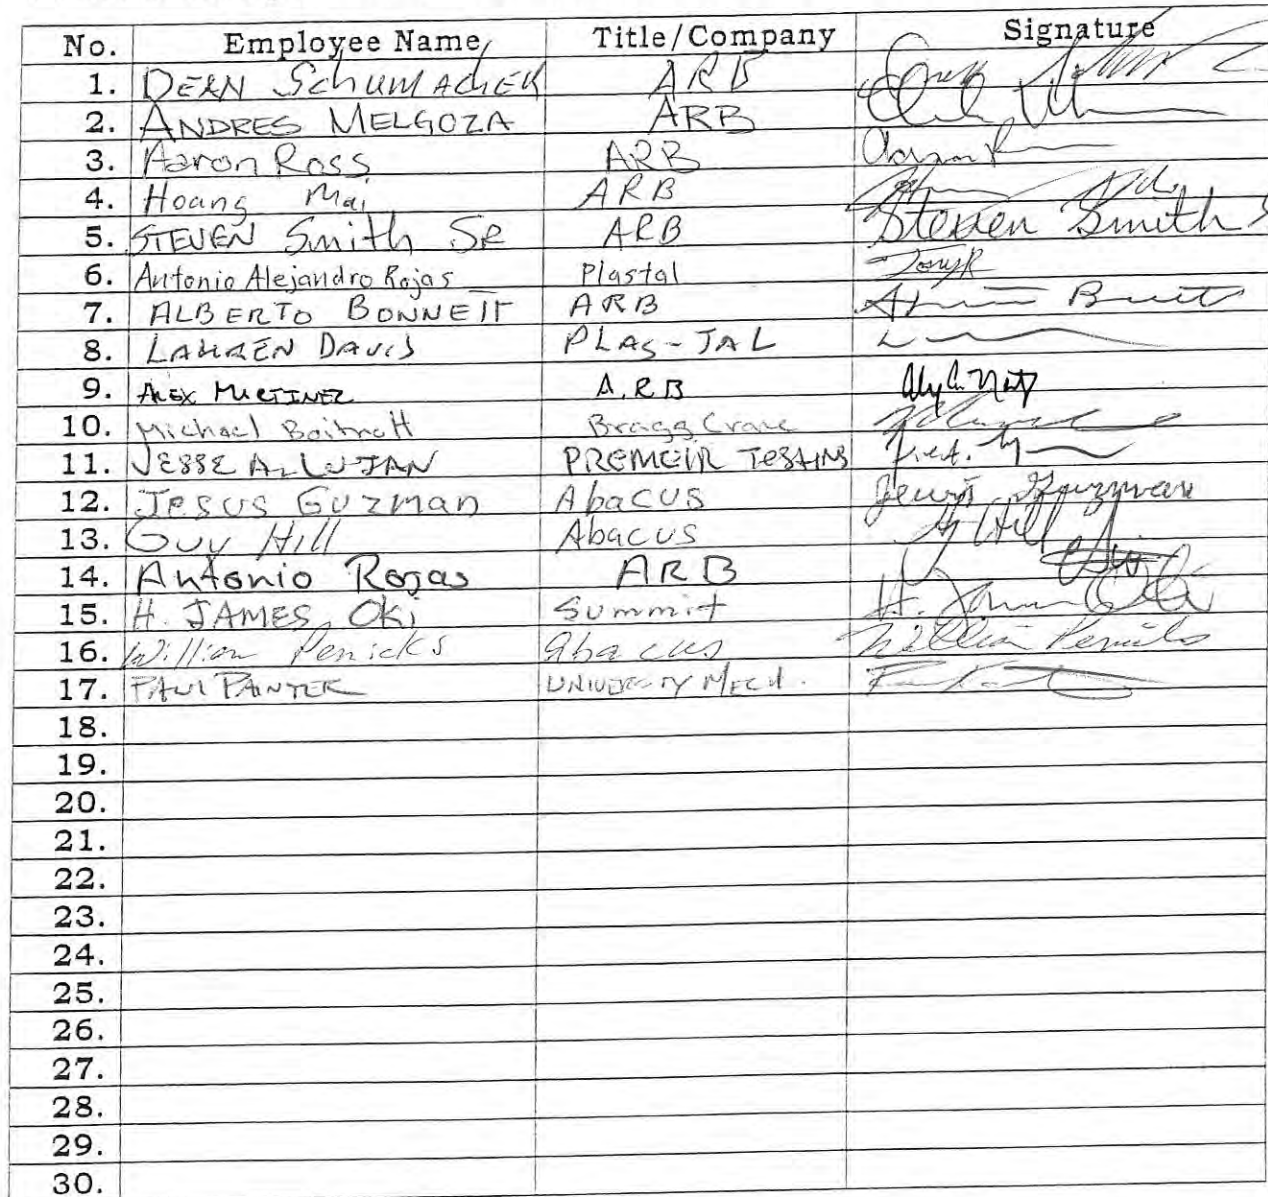 No. Employee Name Title/Company Signature
1. DEAN Schumacher ARB
2. ANDRES MELGOZA ARB
3. Aaron Ross ARB
4. Hoang Mai ARB
5. STEVEN Smith SR ARB Steven Smith S
6. Antonio Alejandro Rojas Plastal TonyR
7. ALBERTO BONNETT ARB
8. LAUREN DAVIS PLAS-TAL
9. ALEX MARTINEZ A.R.B
10. Michael Boitnott Bragg Crane
11. JESSE A. LUJAN PREMEIR TESTING
12. Jesus Guzman Abacus Jesus Guzman
13. Guy Hill Abacus G Hill
14. Antonio Rojas ARB
15. H. JAMES Oki Summit H. James Oki
16. William Penicks abacus William Penicks
17. PAUL PAINTER UNIVERSITY MECH.
18.
19.
20.
21.
22.
23.
24.
25.
26.
27.
28.
29.
30.